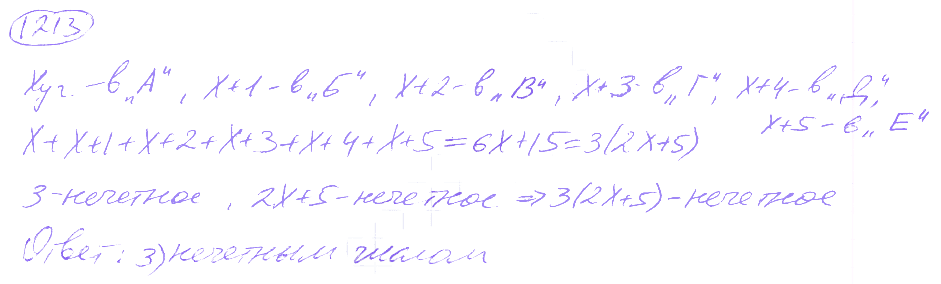 1213
X уч. - в „А“, X+1 - в „Б“, X+2 - в „В“, X+3 - в „Г“, X+4 - в „Д“,
X+5 - в „Е“
X+X+1+X+2+X+3+X+4+X+5=6X+15=3(2X+5)
3-нечетное, 2X+5-нечетное => 3(2X+5)-нечетное
Ответ: 3) нечетным числом